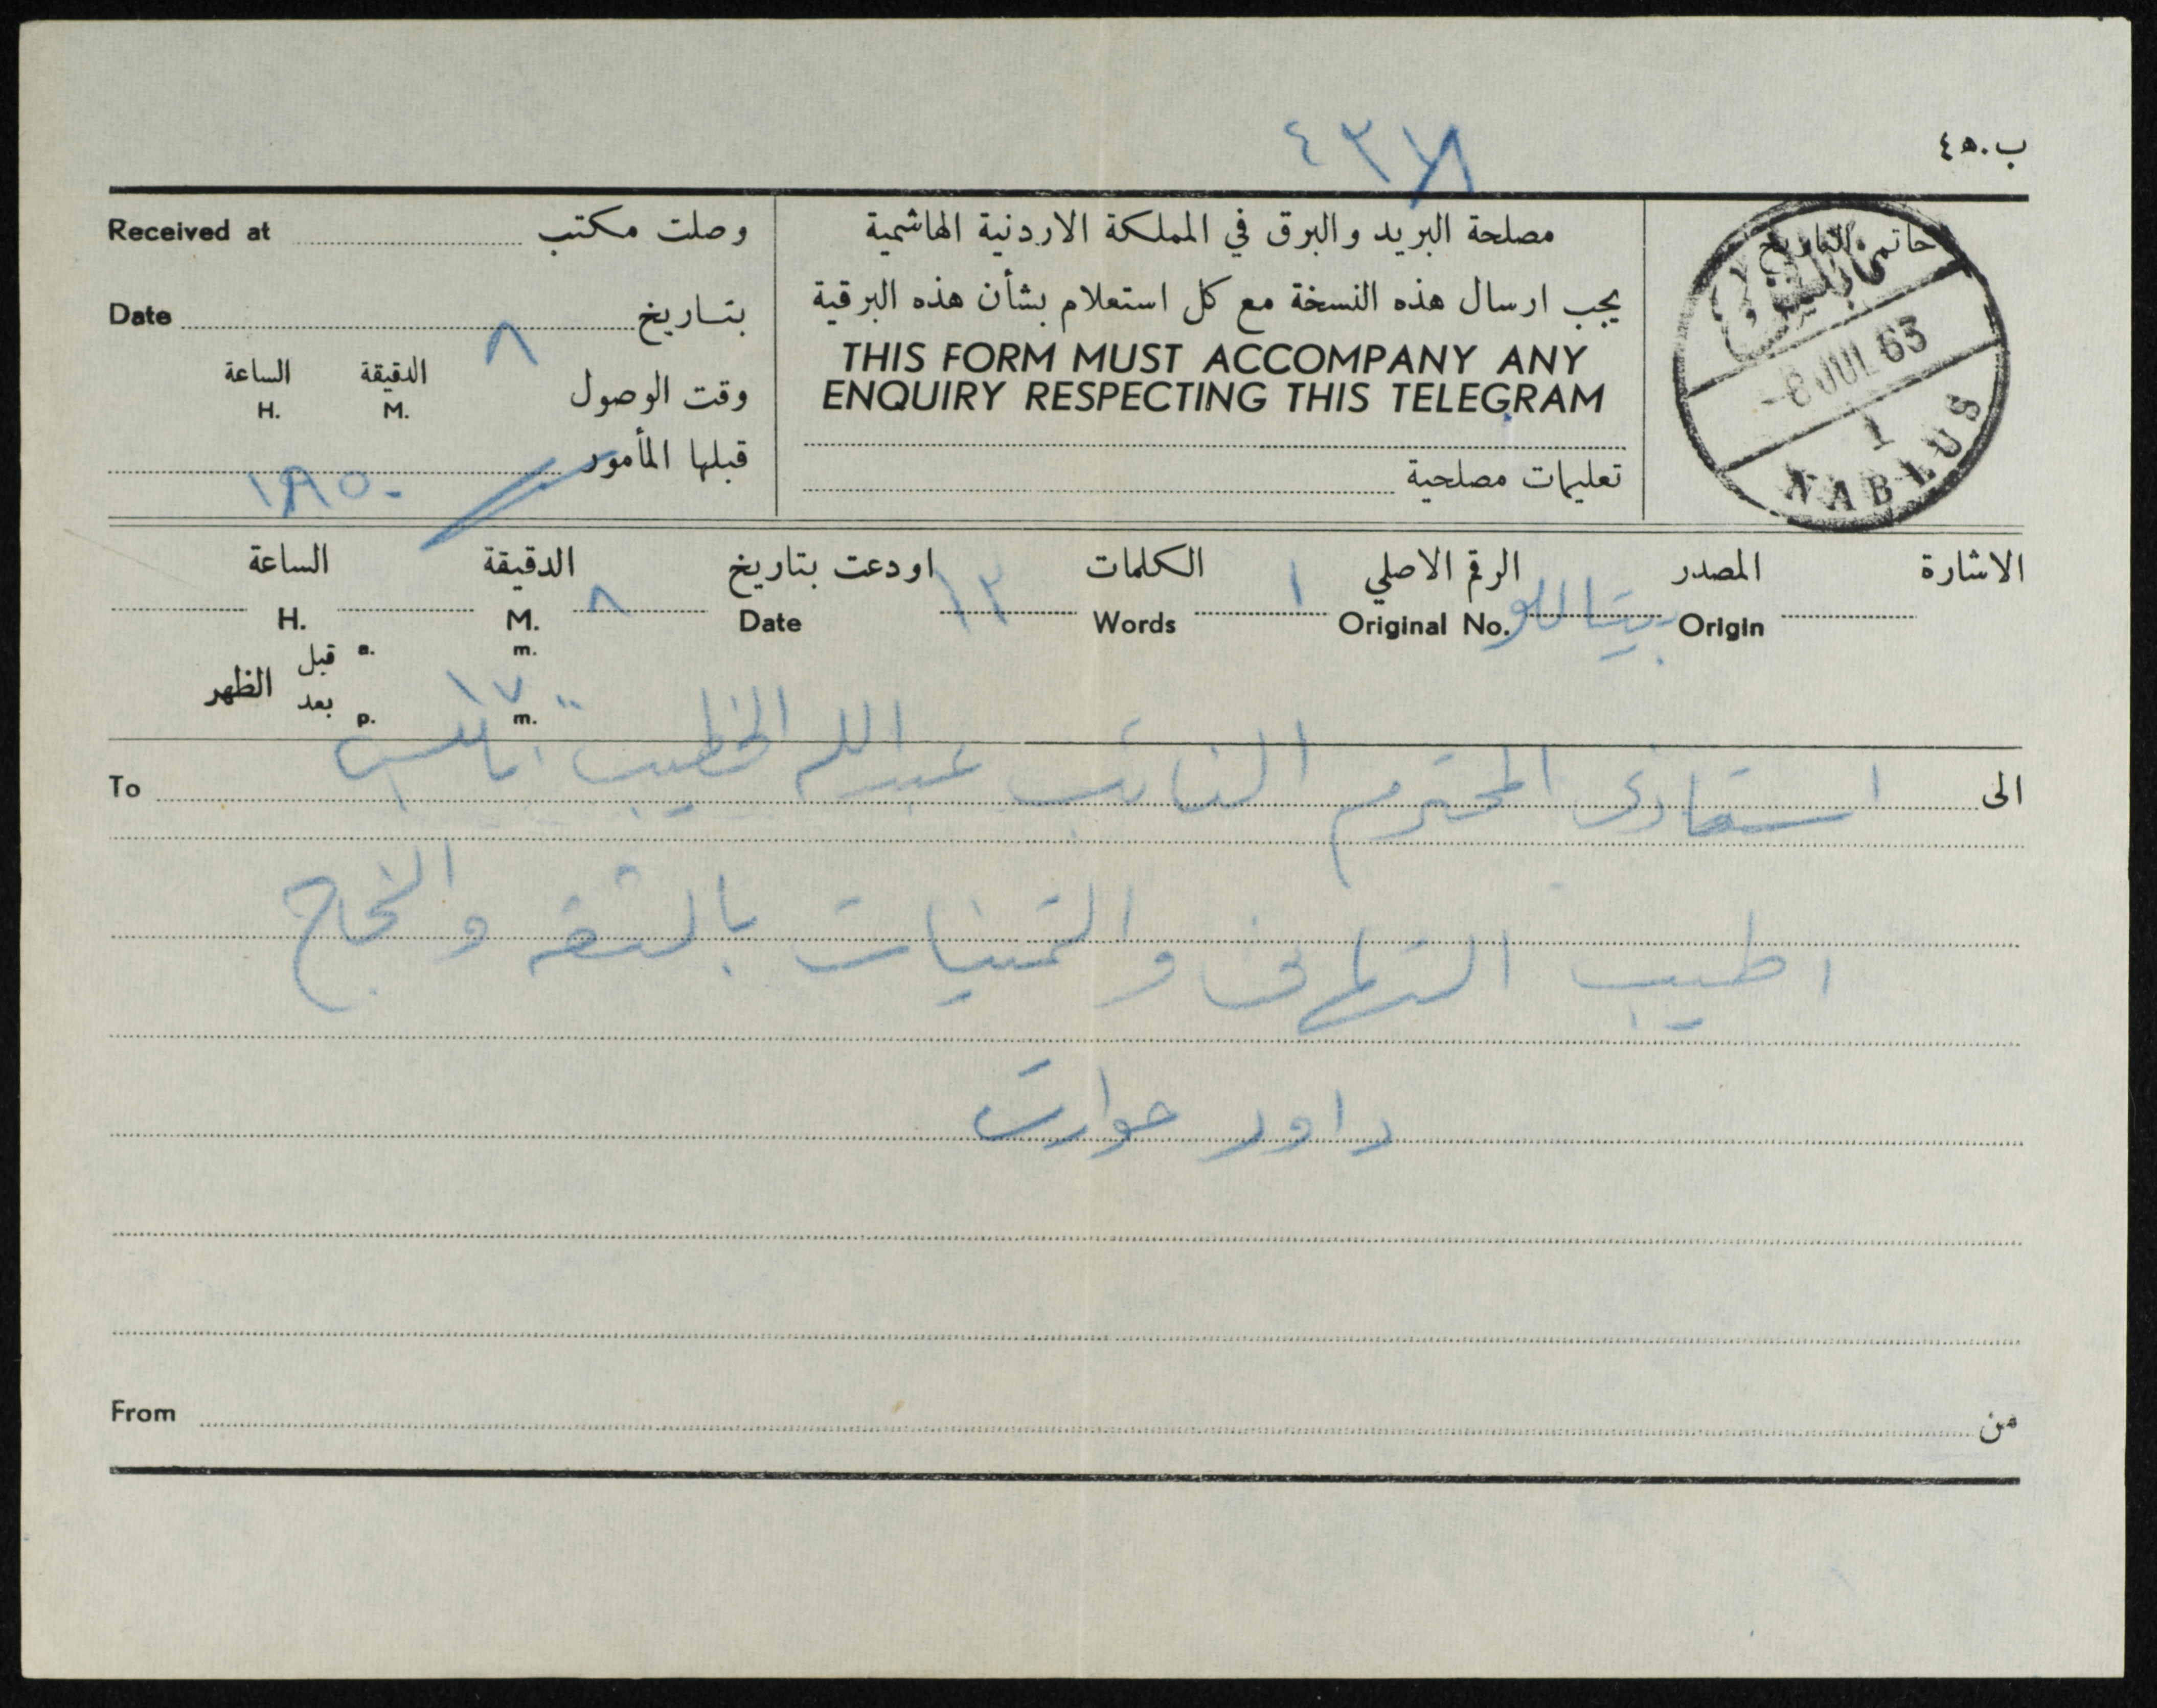 ٤٣٧٨
ب.٤٥
Received at وصلت مكتب
Date بتاريخ ٨
الساعة الدقيقة
H. M. وقت الوصول
قبلها المأمور
١٨٥٠
مصلحة البريد والبرق في المملكة الاردنية الهاشمية
يجب ارسال هذه النسخة مع كل استعلام بشأن هذه البرقية
THIS FORM MUST ACCOMPANY ANY
ENQUIRY RESPECTING THIS TELEGRAM
تعليمات مصلحية
خاتم التاريخ
نابلس
-8 JUL 63
1
NABLUS
الاشارة المصدر الرقم الاصلي الكلمات اودعت بتاريخ الدقيقة الساعة
Origin بيتاللو Original No. ١ Words ١٣ Date ٨ M. H.
a. m. قبل
الظهر
p. m. بعد
١٧٠٠
To الى استاذي المحترم النائب عبد الله الخطيب نابلس
اطيب التهاني والتمنيات بالثقه والنجاح
داود حوارت
From من